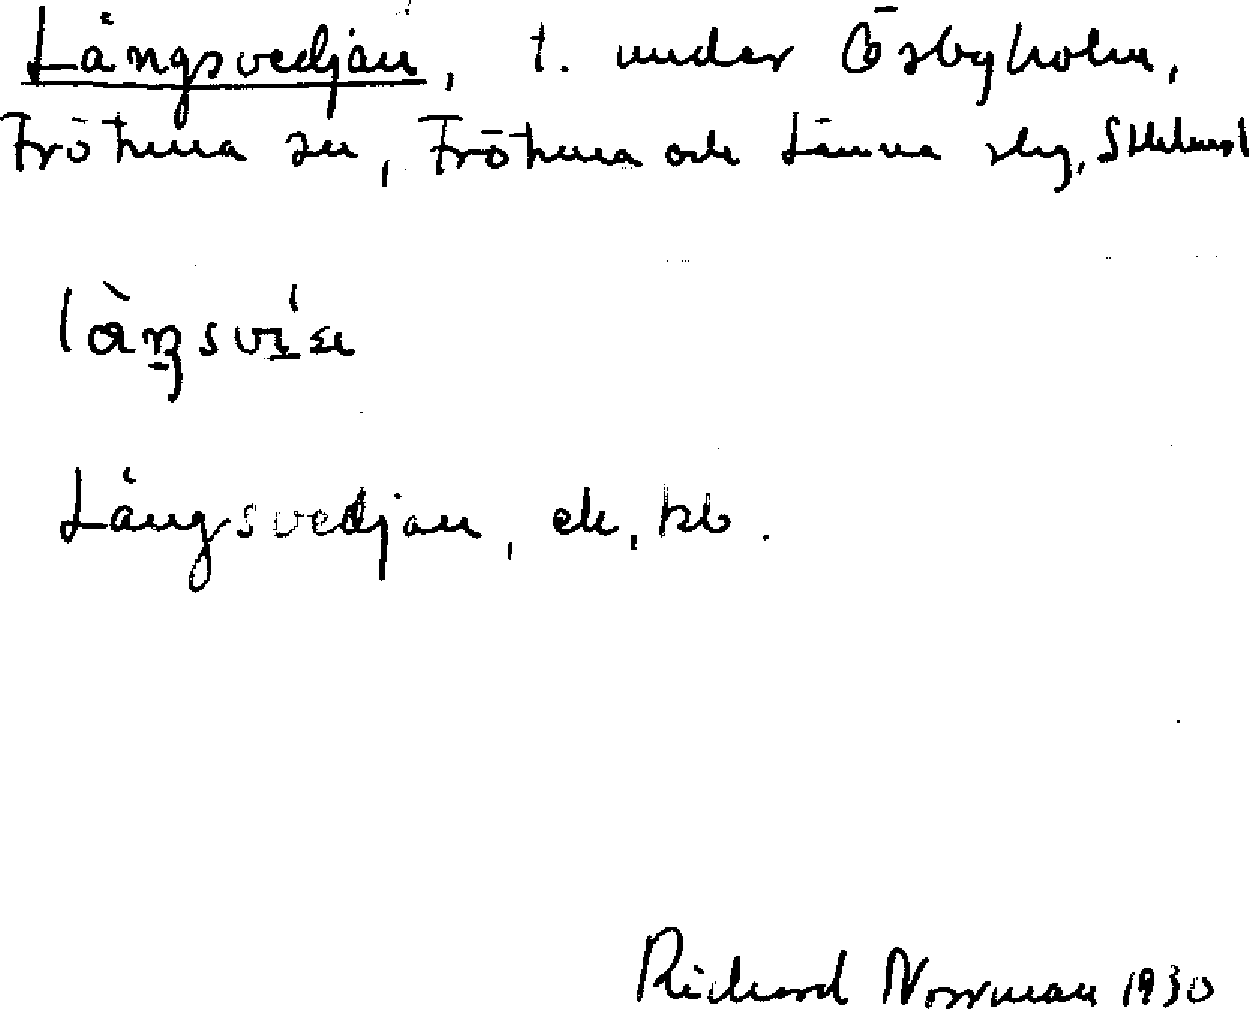 Långsvedjan, t. under Ösbyholm,
Frötuna sn, Frötuna och Länna skg, Sthlms l
Långsvedjan, ek, kb.
Richard Norrman 1930